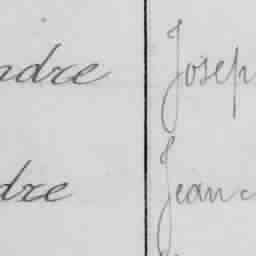 ndre Josep
dre Jean